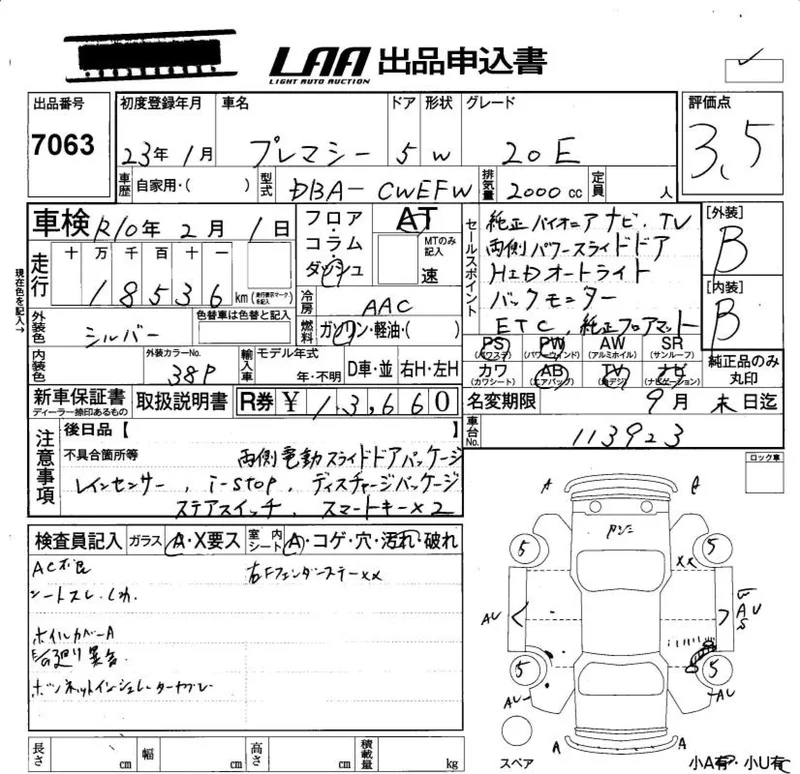 LAA 出品申込書
LIGHT AUTO AUCTION
出品番号 初度登録年月 車名 ドア 形状 グレード 評価点
7063 23年 1月 プレマシー 5 W 20E 3.5
車歴 自家用・( ) 型式 DBA-CWEFW 排気量 2000cc 定員 人
車検 R10年 2月 1日 フロア・コラム・ダッシュ AT MTのみ記入 速
セールスポイント 純正パイオニアナビ・TV
両側パワースライドドア
HIDオートライト
バックモニター
ETC, 純正フロアマット
[外装] B
[内装] B
現在色を記入→
走行 十 万 千 百 十 一
18536 km (走行表示マークを記入)
冷房 AAC
外装色 シルバー 色替車は色替と記入 燃料 ガソリン・軽油・( )
内装色 外装カラーNo. 38P 輸入車 モデル年式 年・不明 D車・並 右H・左H
PS (パワステ) PW (パワーウィンド) AW (アルミホイル) SR (サンルーフ)
カワ (カワシート) AB (エアバッグ) TV (地デジ) ナビ (ナビゲーション)
純正品のみ丸印
新車保証書 ディーラー捺印あるもの 取扱説明書 R券 ¥ 13,660 名変期限 9月 末日迄
車台No. 113923
注意事項 後日品【 】
不具合箇所等 両側電動スライドドアパッケージ
レインセンサー, i-stop, ディスチャージパッケージ
ステアスイッチ, スマートキー×2
ロック車
検査員記入 ガラス A・X要ス 室内シート A・コゲ・穴・汚れ・破れ
AC不良 右FフェンダーステーXX
シートスレ・
ホイルカバーA
廻り異音
ボンネットインシュレーター
A
5 5
XX
AU AU
5 5
AU AU
A A
スペア 小A有・小U有
長さ cm 幅 cm 高さ cm 積載量 kg